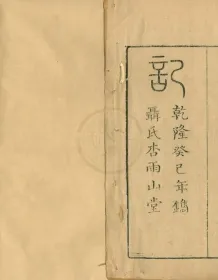 記
乾隆癸巳年鐫
聶氏杏雨山堂